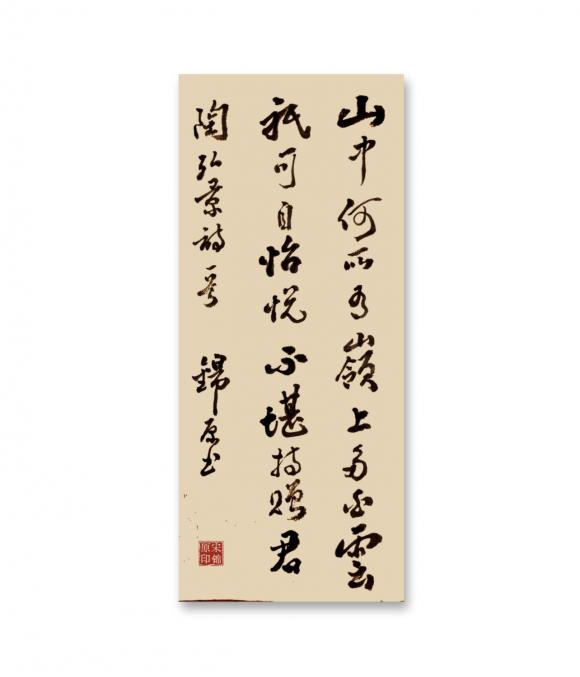 山中何所有嶺上多白雲
祇可自怡悦不堪持贈君
陶弘景詩一首 錦原书
宋錦原印